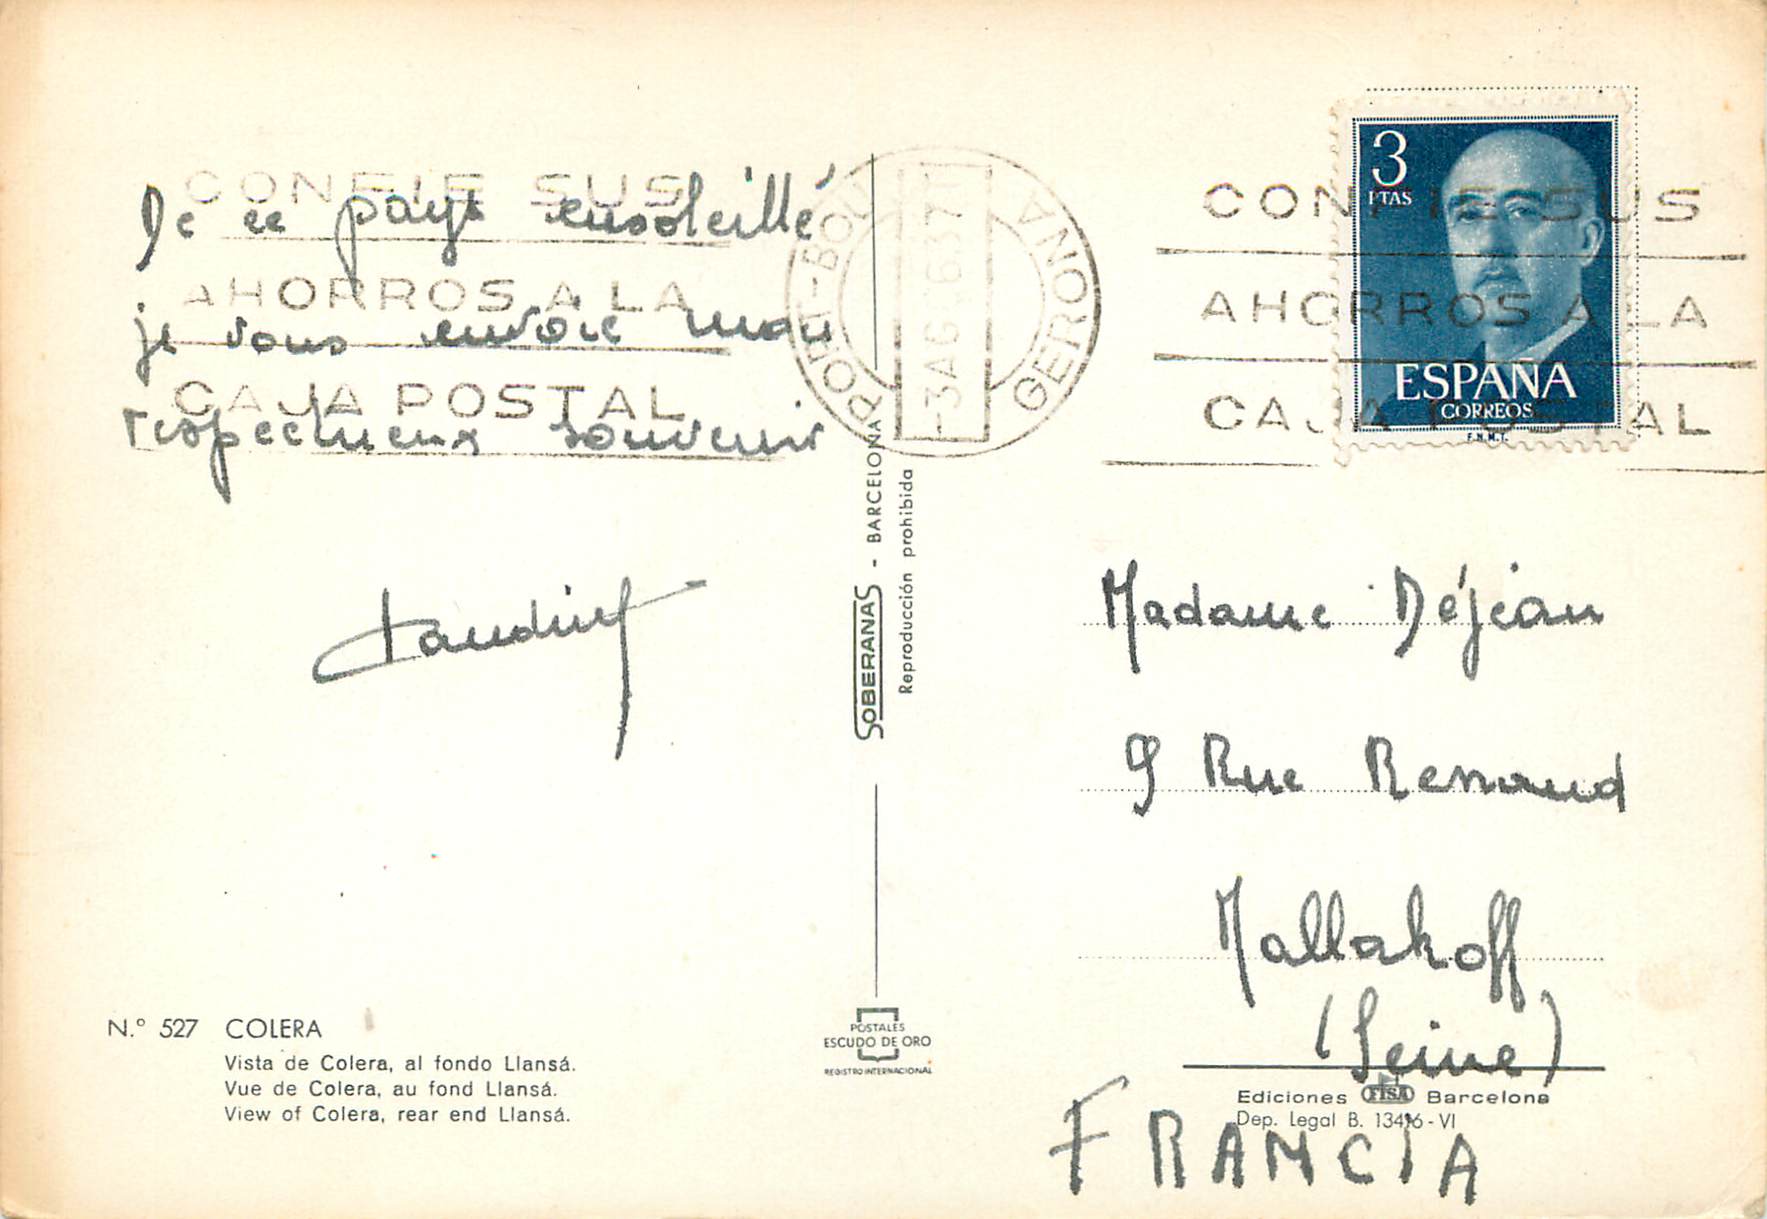 CONFIE SUS
AHORROS A LA
CAJA POSTAL
De ce pays ensoleillé
je vous envoie mon
respectueux souvenir
PORT-BOU
GERONA
-3 AG
CONFIE SUS
AHORROS A LA
CAJA POSTAL
3
PTAS
ESPAÑA
CORREOS
F.N.M.T.
SOBERANAS - BARCELONA
Reproducción prohibida
Madame Déjean
9 Rue Renaud
Mallakoff
(Seine)
FRANCIA
N.º 527 COLERA
Vista de Colera, al fondo Llansá.
Vue de Colera, au fond Llansá.
View of Colera, rear end Llansá.
POSTALES
ESCUDO DE ORO
REGISTRO INTERNACIONAL
Ediciones FISA Barcelona
Dep. Legal B. 13416-VI